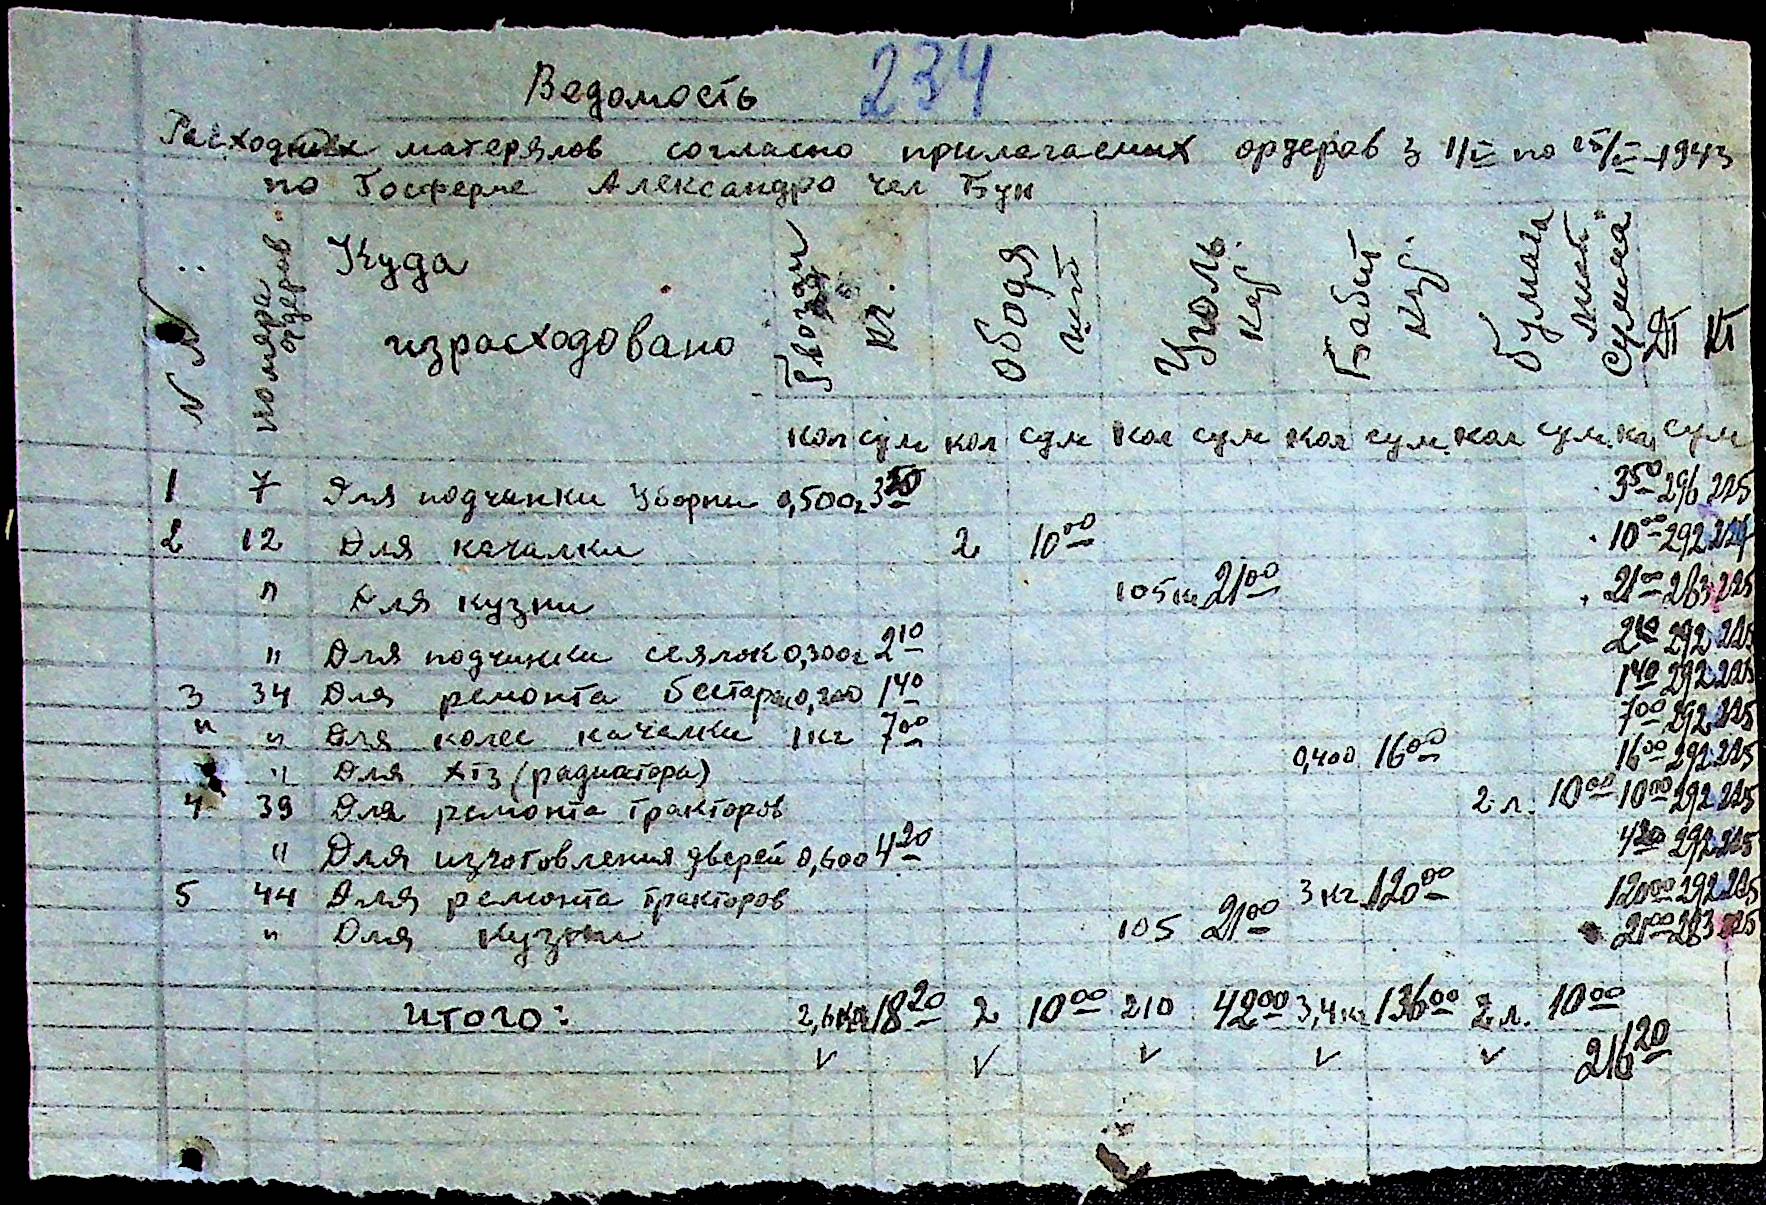 234
Ведомость
Расходных матерялов согласно прилагаемих ордеров з 1/V по 15/V-1943
по Госферме Александро чел Бун
NN номера ордеров Куда израсходовано Гвозди кг. Ободя шт Уголь кг. Бабит кг. Бумага лист Сумма Дт Кт
кол сум кол сум кол сум кол сум кол сум кц сум
1 7 Для подчинки Уборни 0,500г 3 50 3 50 296 225
2 12 Для качалки 2 10 00 10 00 292 224
" Для кузни 105 кг 21 00 21 00 283 225
" Для подчинки сеялок 0,300г 2 10 2 10 292 225
3 34 Для ремонта бестарки 0,200 1 40 1 40 292 225
" " Для колес качалки 1 кг 7 00 7 00 292 225
" Для ХТЗ (радиатора) 0,400 16 00 16 00 292 225
4 39 Для ремонта тракторов 2 л. 10 00 10 00 292 225
" Для изготовления дверей 0,600 4 20 4 20 292 225
5 44 Для ремонта тракторов 3 кг 120 00 120 00 292 225
" Для кузни 105 21 00 21 00 283 225
итого: 2,6 кг 18 20 2 10 00 210 42 00 3,4 кг 136 00 2 л. 10 00
216 20